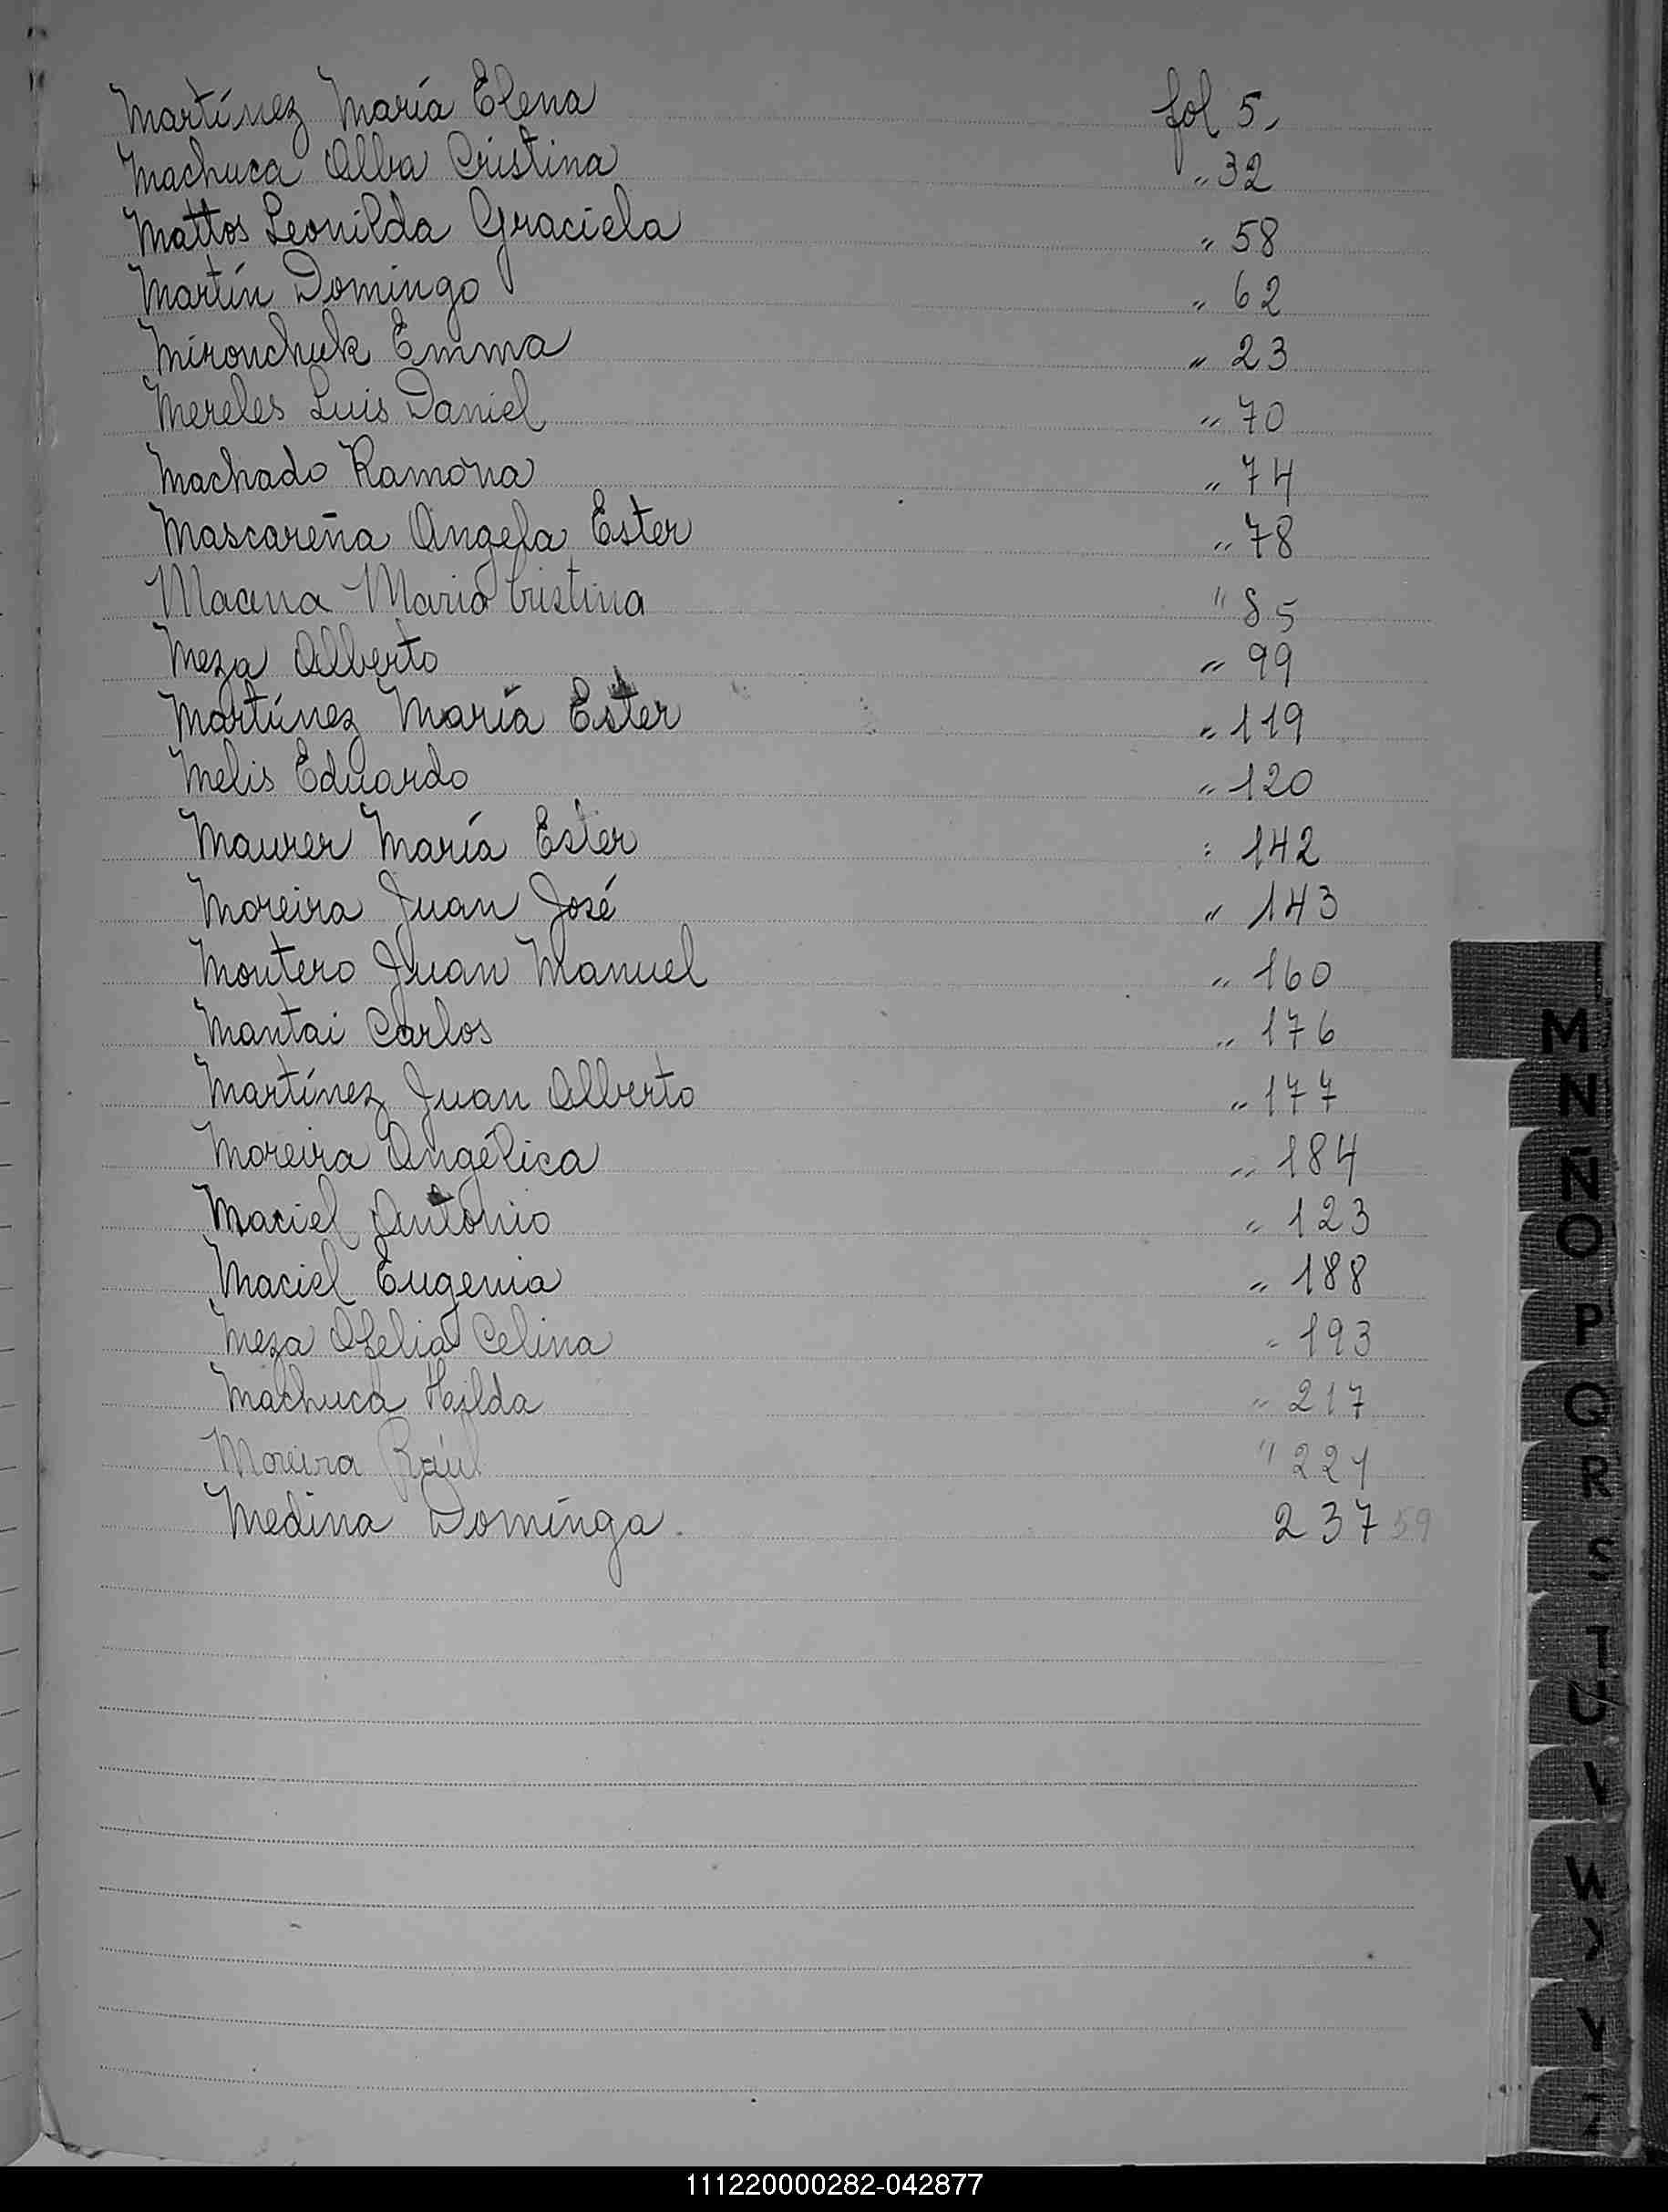 Martínez María Elena fol 5.
Machuca Alba Cristina " 32
Mattos Leonilda Graciela " 58
Martín Domingo " 62
Mironchuk Emma " 23
Mereles Luis Daniel " 70
Machado Ramona " 74
Mascareña Angela Ester " 78
Maria Cristina " 85
Meza Alberto " 99
Martínez María Ester " 119
Melis Eduardo " 120
Maurer María Ester " 142
Moreira Juan José " 143
Montero Juan Manuel " 160
Mantai Carlos " 176
Martínez Juan Alberto " 177
Moreira Angélica " 184
Maciel Antonio " 123
Maciel Eugenia " 188
Meza Ofelia Celina " 193
Machuca Hilda " 217
Moreira Raúl " 221
Medina Dominga 237 59
M
N
Ñ
O
P
Q
R
S
T
U
V
W
X
Y
Z
111220000282-042877